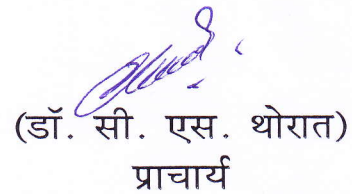 (डॉ. सी. एस. थोरात)
प्राचार्य